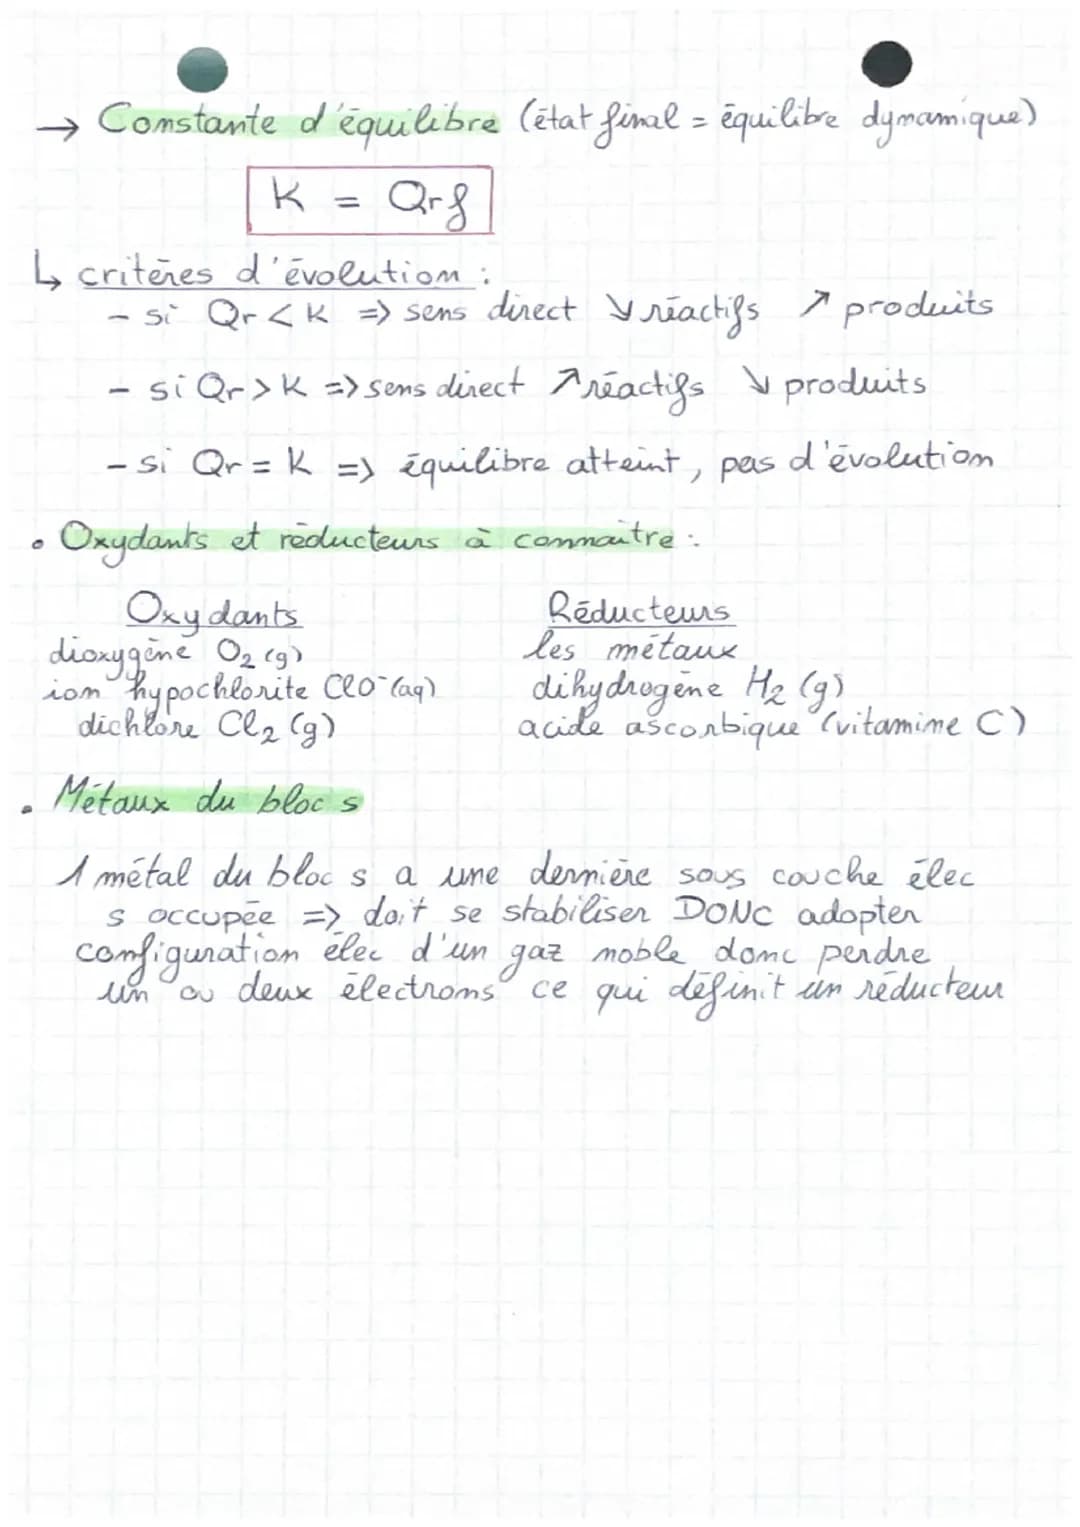 → Constante d'équilibre (état final = équilibre dynamique)
K = Qrf
↳ critères d'évolution :
- si Qr < K => sens direct ↘ réactifs ↗ produits
- si Qr > K => sens direct ↗ réactifs ↘ produits
- si Qr = K => équilibre atteint, pas d'évolution
• Oxydants et réducteurs à connaître :
Oxydants Réducteurs
dioxygène O₂ (g) les métaux
ion hypochlorite ClO⁻ (aq) dihydrogène H₂ (g)
dichlore Cl₂ (g) acide ascorbique (vitamine C)
• Métaux du bloc s
1 métal du bloc s a une dernière sous couche élec
s occupée => doit se stabiliser DONC adopter
configuration élec d'un gaz noble donc perdre
un ou deux électrons ce qui définit un réducteur